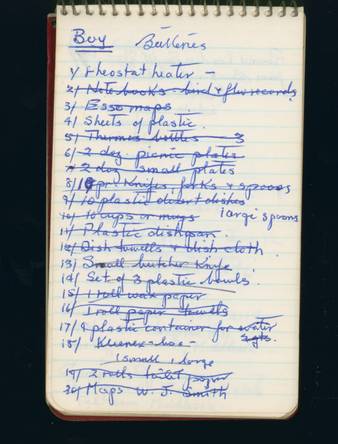 Buy Batteries
1/ rheostat heater -
2/ Note books - bird & flur records
3/ Esso maps.
4/ Sheets of plastic.
5/ Thermos bottles - 3
6/ 2 doz. picnic plates
7 2 doz small plates
8/ 10 pr. Knifes, forks & spoons
9/ 10 plastic desert dishes
10/ 10 cups or mugs large spoons
11/ Plastic dishpan.
12/ Dish towells & dish cloth.
13/ Small butcher Knife.
14/ Set of 3 plastic bowls.
15/ 1 roll wax paper
16/ 1 roll paper towells
17/ 9 plastic container for water
18/ Kleenex - box -
1 small, 1 large
19/ 2 rolls toilet paper
20/ Maps W. J. Smith